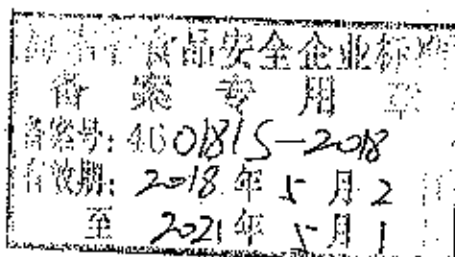 海南省食品安全企业标准
备案专用章
备案号: 460181S-2018
有效期: 2018年5月2日
至 2021年5月1日